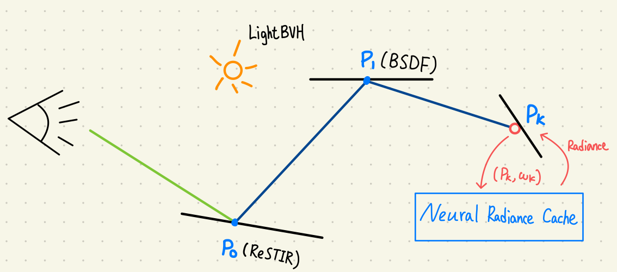 LightBVH
P1 (BSDF)
Pk
Radiance
(Pk, ωk)
Neural Radiance Cache
P0 (ReSTIR)